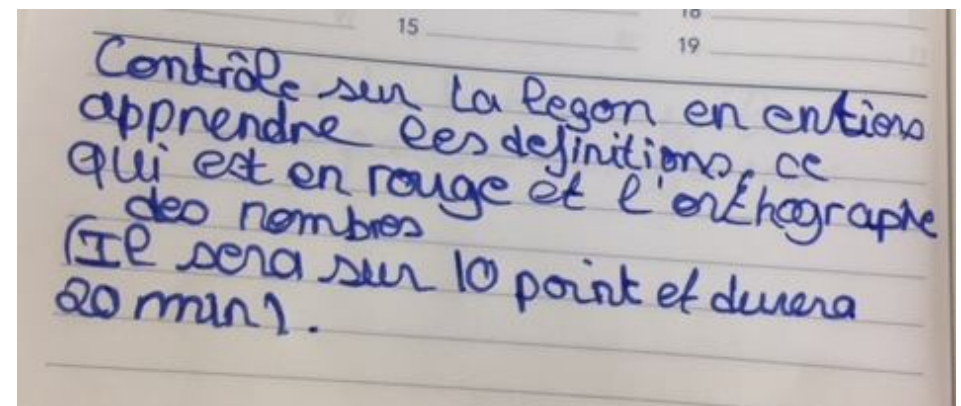 15
18
19
Contrôle sur La leçon en entiers
apprendre les definitions, ce
qui est en rouge et l'orthographe
des nombres
(Il sera sur 10 point et durera
20 min).